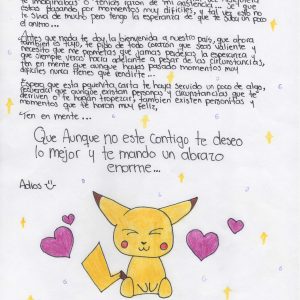 estas pasando por momentos muy difíciles, y tal vez esto no
lo sirva de mucho pero tengo la esperanza de que te suba un poco
el animo...
Antes que nada te doy la bienvenida a nuestro país, que ahora
también es tuyo, te pido de todo corazon que seas valiente y
necesito que me prometas que jamas perderas la esperanza y
que siempre veras hacia adelante a pesar de las circunstancias,
ten en mente que aunque hayas pasado momentos muy
difíciles nunca tienes que rendirte...
Espero que esta pequeñita carta te haya servido un poco de algo,
recuerda que aunque existan personas y circunstancias que
te hagan tropezar, tambien existen personitas y
momentos que te haran muy feliz,
Ten en mente...
Que Aunque no este contigo te deseo
lo mejor y te mando un abrazo
enorme...
Adios